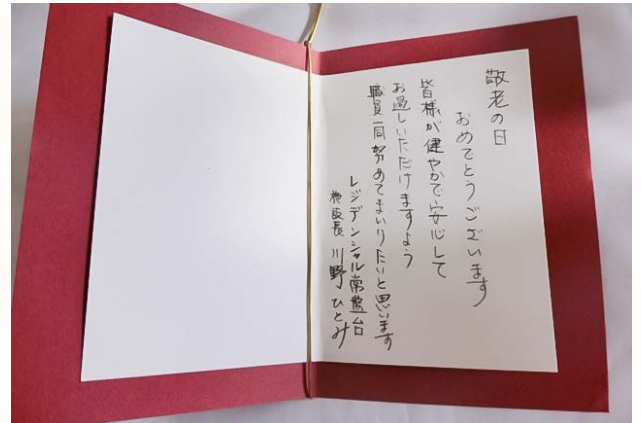 敬老の日
おめでとうございます
皆様が健やかで安心して
お過しいただけますよう
職員一同努めてまいりたいと思います
レジデンシャル常盤台
施設長 川野ひとみ